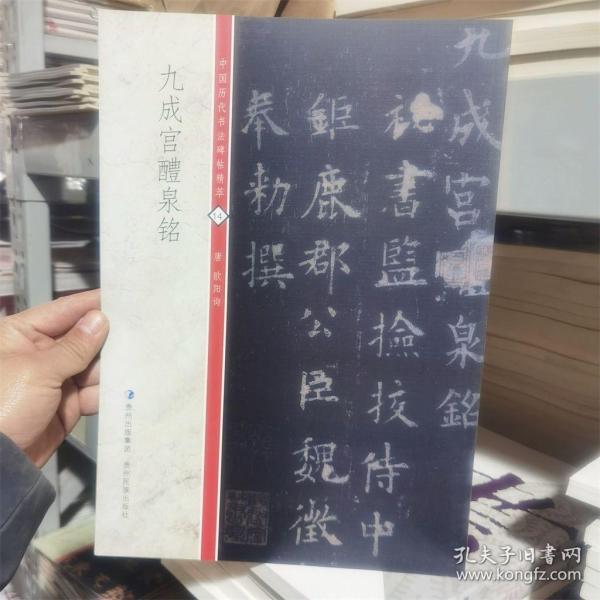 九成宫醴泉铭
贵州出版集团 贵州民族出版社
中国历代书法碑帖精萃
14
唐 欧阳询
九成宫醴泉銘
秘書監撿挍侍中
鉅鹿郡公臣魏徵
奉勅撰
孔夫子旧书网
www.kongfz.com